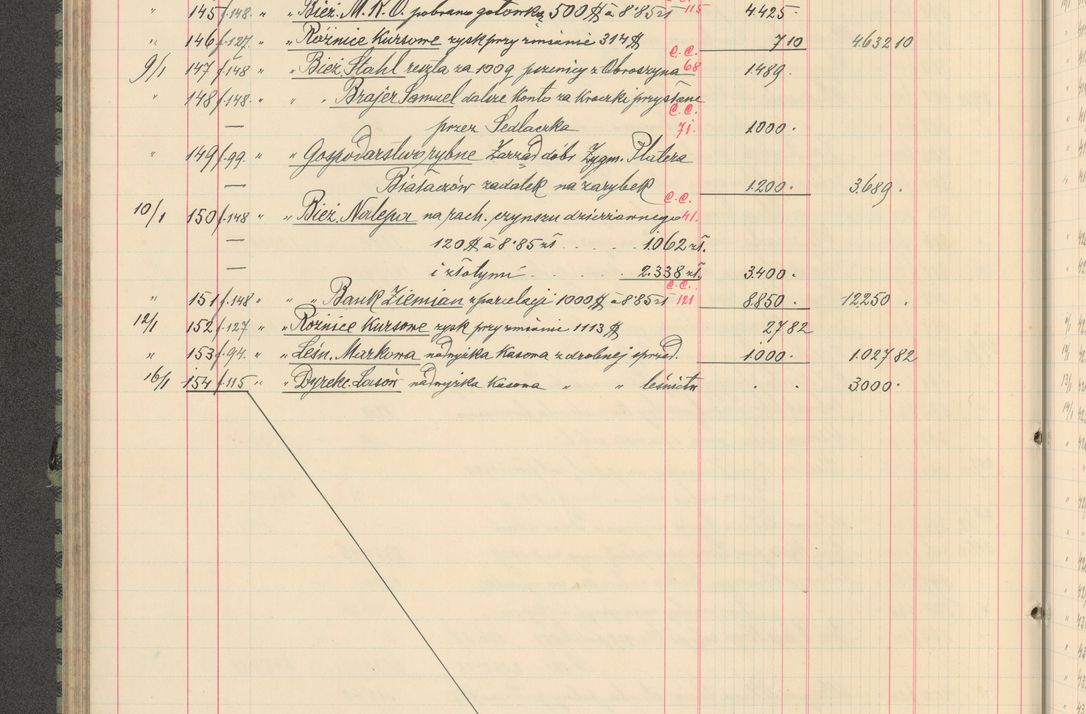 " 145 f.148. " Bież. M.K.O. pobrano gotówką 500 $ à 8'85 zł 115 4.425.
" 146 f.127. " Różnice Kursowe zysk przy zmianie 314 $ 7 10 4632 10
9/1 147 f.148 " Bież. Stahl reszta za 100 q pszenicy z Obroszyna C.C. 68 1.489.
" 148 f.148. " " Brajer Samuel dalsze Konto za Kroczki przysłane
— przez Sedlaczka C.C. 71. 1000.
" 149 f.99. " " Gospodarstwo rybne Zarząd dóbr Zygm. Platera
— Białaczów zadatek na zarybek 1.200. 3.689.
10/1 150 f.148 " " Bież. Nalepa na rach. czynszu dzierżawnego C.C. 41.
— 120 $ à 8'85 zł . . . . 1.062 zł.
— i złotymi . . . . . 2.338 zł. 3.400.
" 151 f.148 " " Bank Ziemian z parcelacji 1000 $ à 8'85 zł C.C. 121 8.850. 12.250.
12/1 152 f.127 " " Różnice Kursowe zysk przy zmianie 1113 $ 27 82
" 153 f.94. " " Leśn. Markowa nadwyżka Kasowa z drobnej sprzed. 1.000. 1.027 82
16/1 154 f.115 " " Dyrekc. Lasów nadwyżka Kasowa " " leśnictw . . 3000.